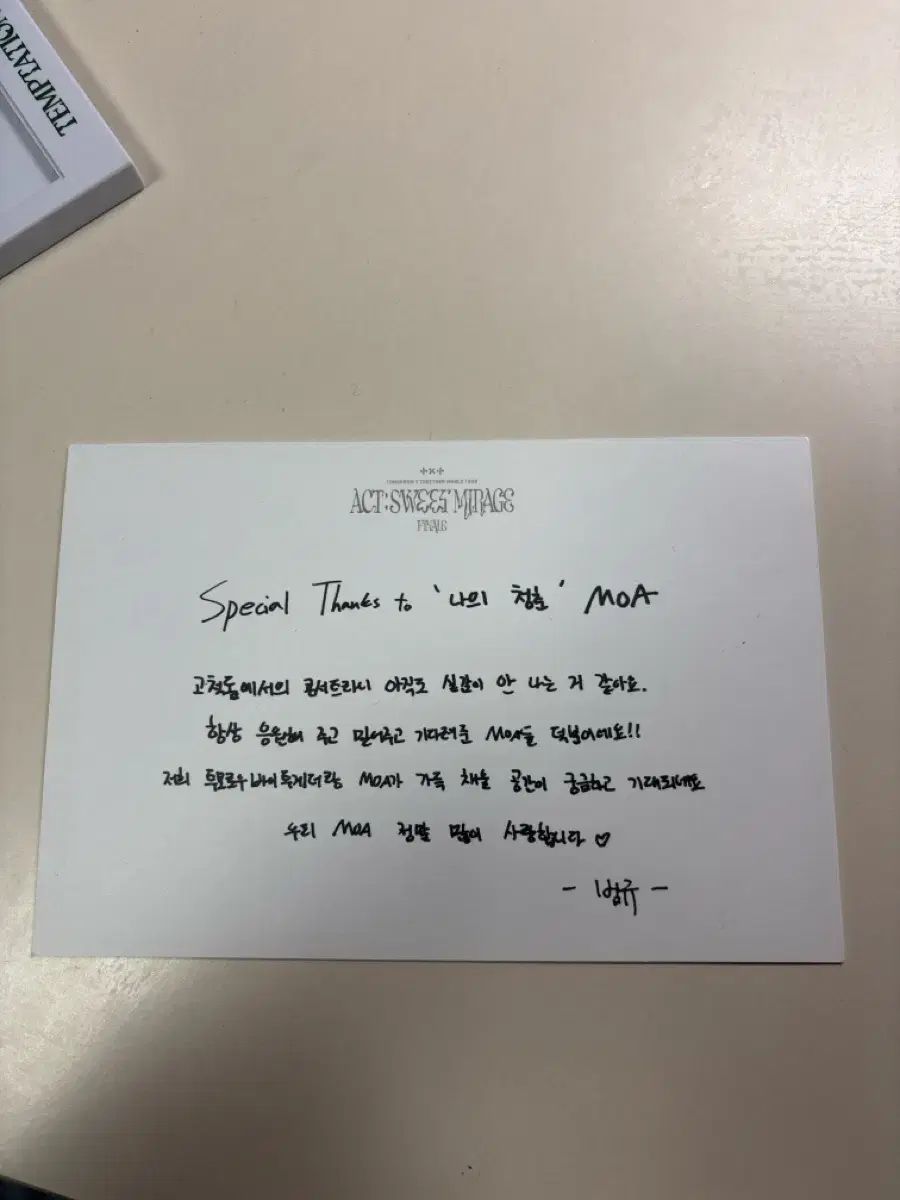 TEMPTATION
TOMORROW X TOGETHER WORLD TOUR
ACT : SWEET MIRAGE
FINALE
Special Thanks to '나의 청춘' MOA
고척돔에서의 콘서트라니 아직도 실감이 안 나는 거 같아요.
항상 응원해 주고 믿어주고 기다려준 MOA들 덕분이에요!!
저희 투모로우바이투게더랑 MOA가 가득 채울 공간이 궁금하고 기대되네요
우리 MOA 정말 많이 사랑합니다 ♡
- 범규 -